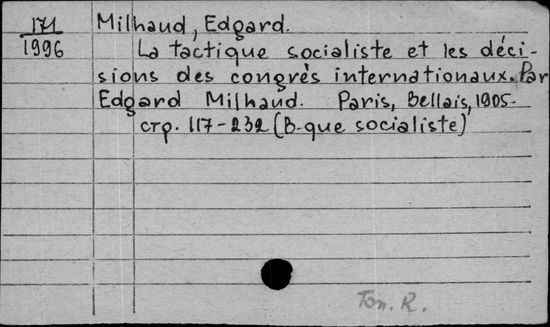 171
1996
Milhaud, Edgard.
La tactique socialiste et les déci-
sions des congrès internationaux. Par
Edgard Milhaud. Paris, Bellais, 1905.
стр. 117-232 (B-que socialiste)
Топ. R.